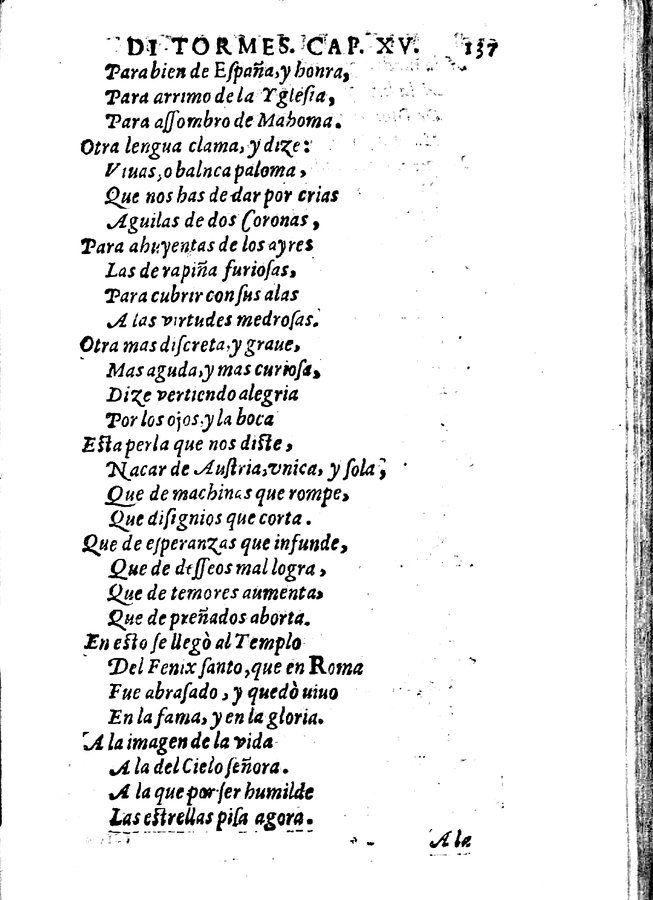 DI TORMES. CAP. XV. 137
Para bien de España, y honra,
Para arrimo de la Yglesia,
Para assombro de Mahoma.
Otra lengua clama, y dize:
Viuas, o balnca paloma,
Que nos has de dar por crias
Aguilas de dos Coronas,
Para ahuyentas de los ayres
Las de rapiña furiosas,
Para cubrir con sus alas
A las virtudes medrosas.
Otra mas discreta, y graue,
Mas aguda, y mas curiosa,
Dize vertiendo alegria
Por los ojos, y la boca
Esta perla que nos diste,
Nacar de Austria, vnica, y sola,
Que de machinas que rompe,
Que disignios que corta.
Que de esperanzas que infunde,
Que de desseos mal logra,
Que de temores aumenta,
Que de preñados aborta.
En esto se llegò al Templo
Del Fenix santo, que en Roma
Fue abrasado, y quedò uiuo
En la fama, y en la gloria.
A la imagen de la vida
A la del Cielo señora.
A la que por ser humilde
Las estrellas pisa agora.
A la